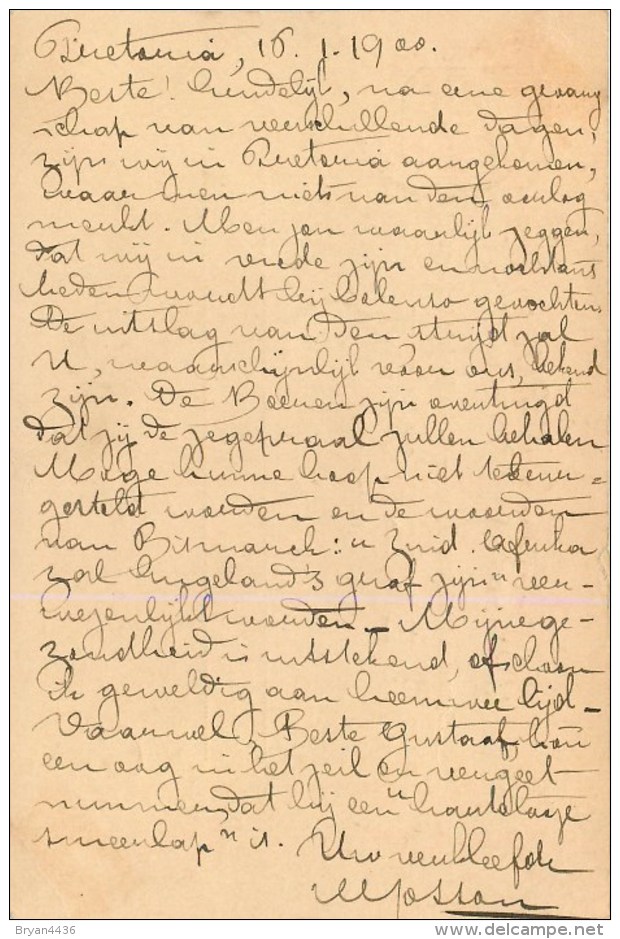 Pretoria, 16.1.1900.
Beste! Eindelijk, na eene gevang
schap van verschillende dagen,
zijn wij in Pretoria aangekomen,
waar men niets van den oorlog
merkt. Men zou waarlijk zeggen,
dat wij in vrede zijn en nochtans
heden wordt bij Colenso gevochten.
De uitslag van den strijd zal
U, waarschijnlijk vóór ons, bekend
zijn. De Boeren zijn overtuigd
dat zij de zegepraal zullen behalen
Moge hunne hoop niet teleur=
gesteld worden en de woorden
van Bismarck: "Zuid. Afrika
zal Engeland's graf zijn" ver-
wezenlijkt worden - Mijne ge-
zondheid is uitstekend, ofschoon
ik geweldig aan heimwee lijd -
Vaarwel, Beste Gustaaf, hou
een oog in het zeil en vergeet
nimmer, dat hij een "harteloose
smeerlap" is. Uw verkleefde